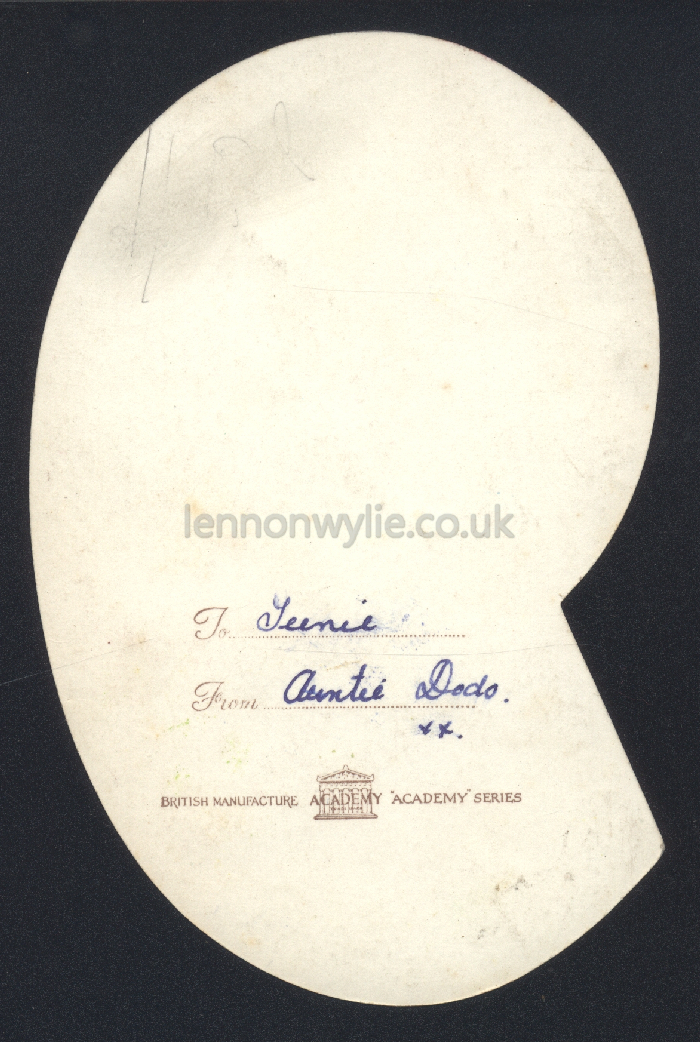 lennonwylie.co.uk
To Teenie
From Auntie Dodo.
xx.
BRITISH MANUFACTURE ACADEMY "ACADEMY" SERIES